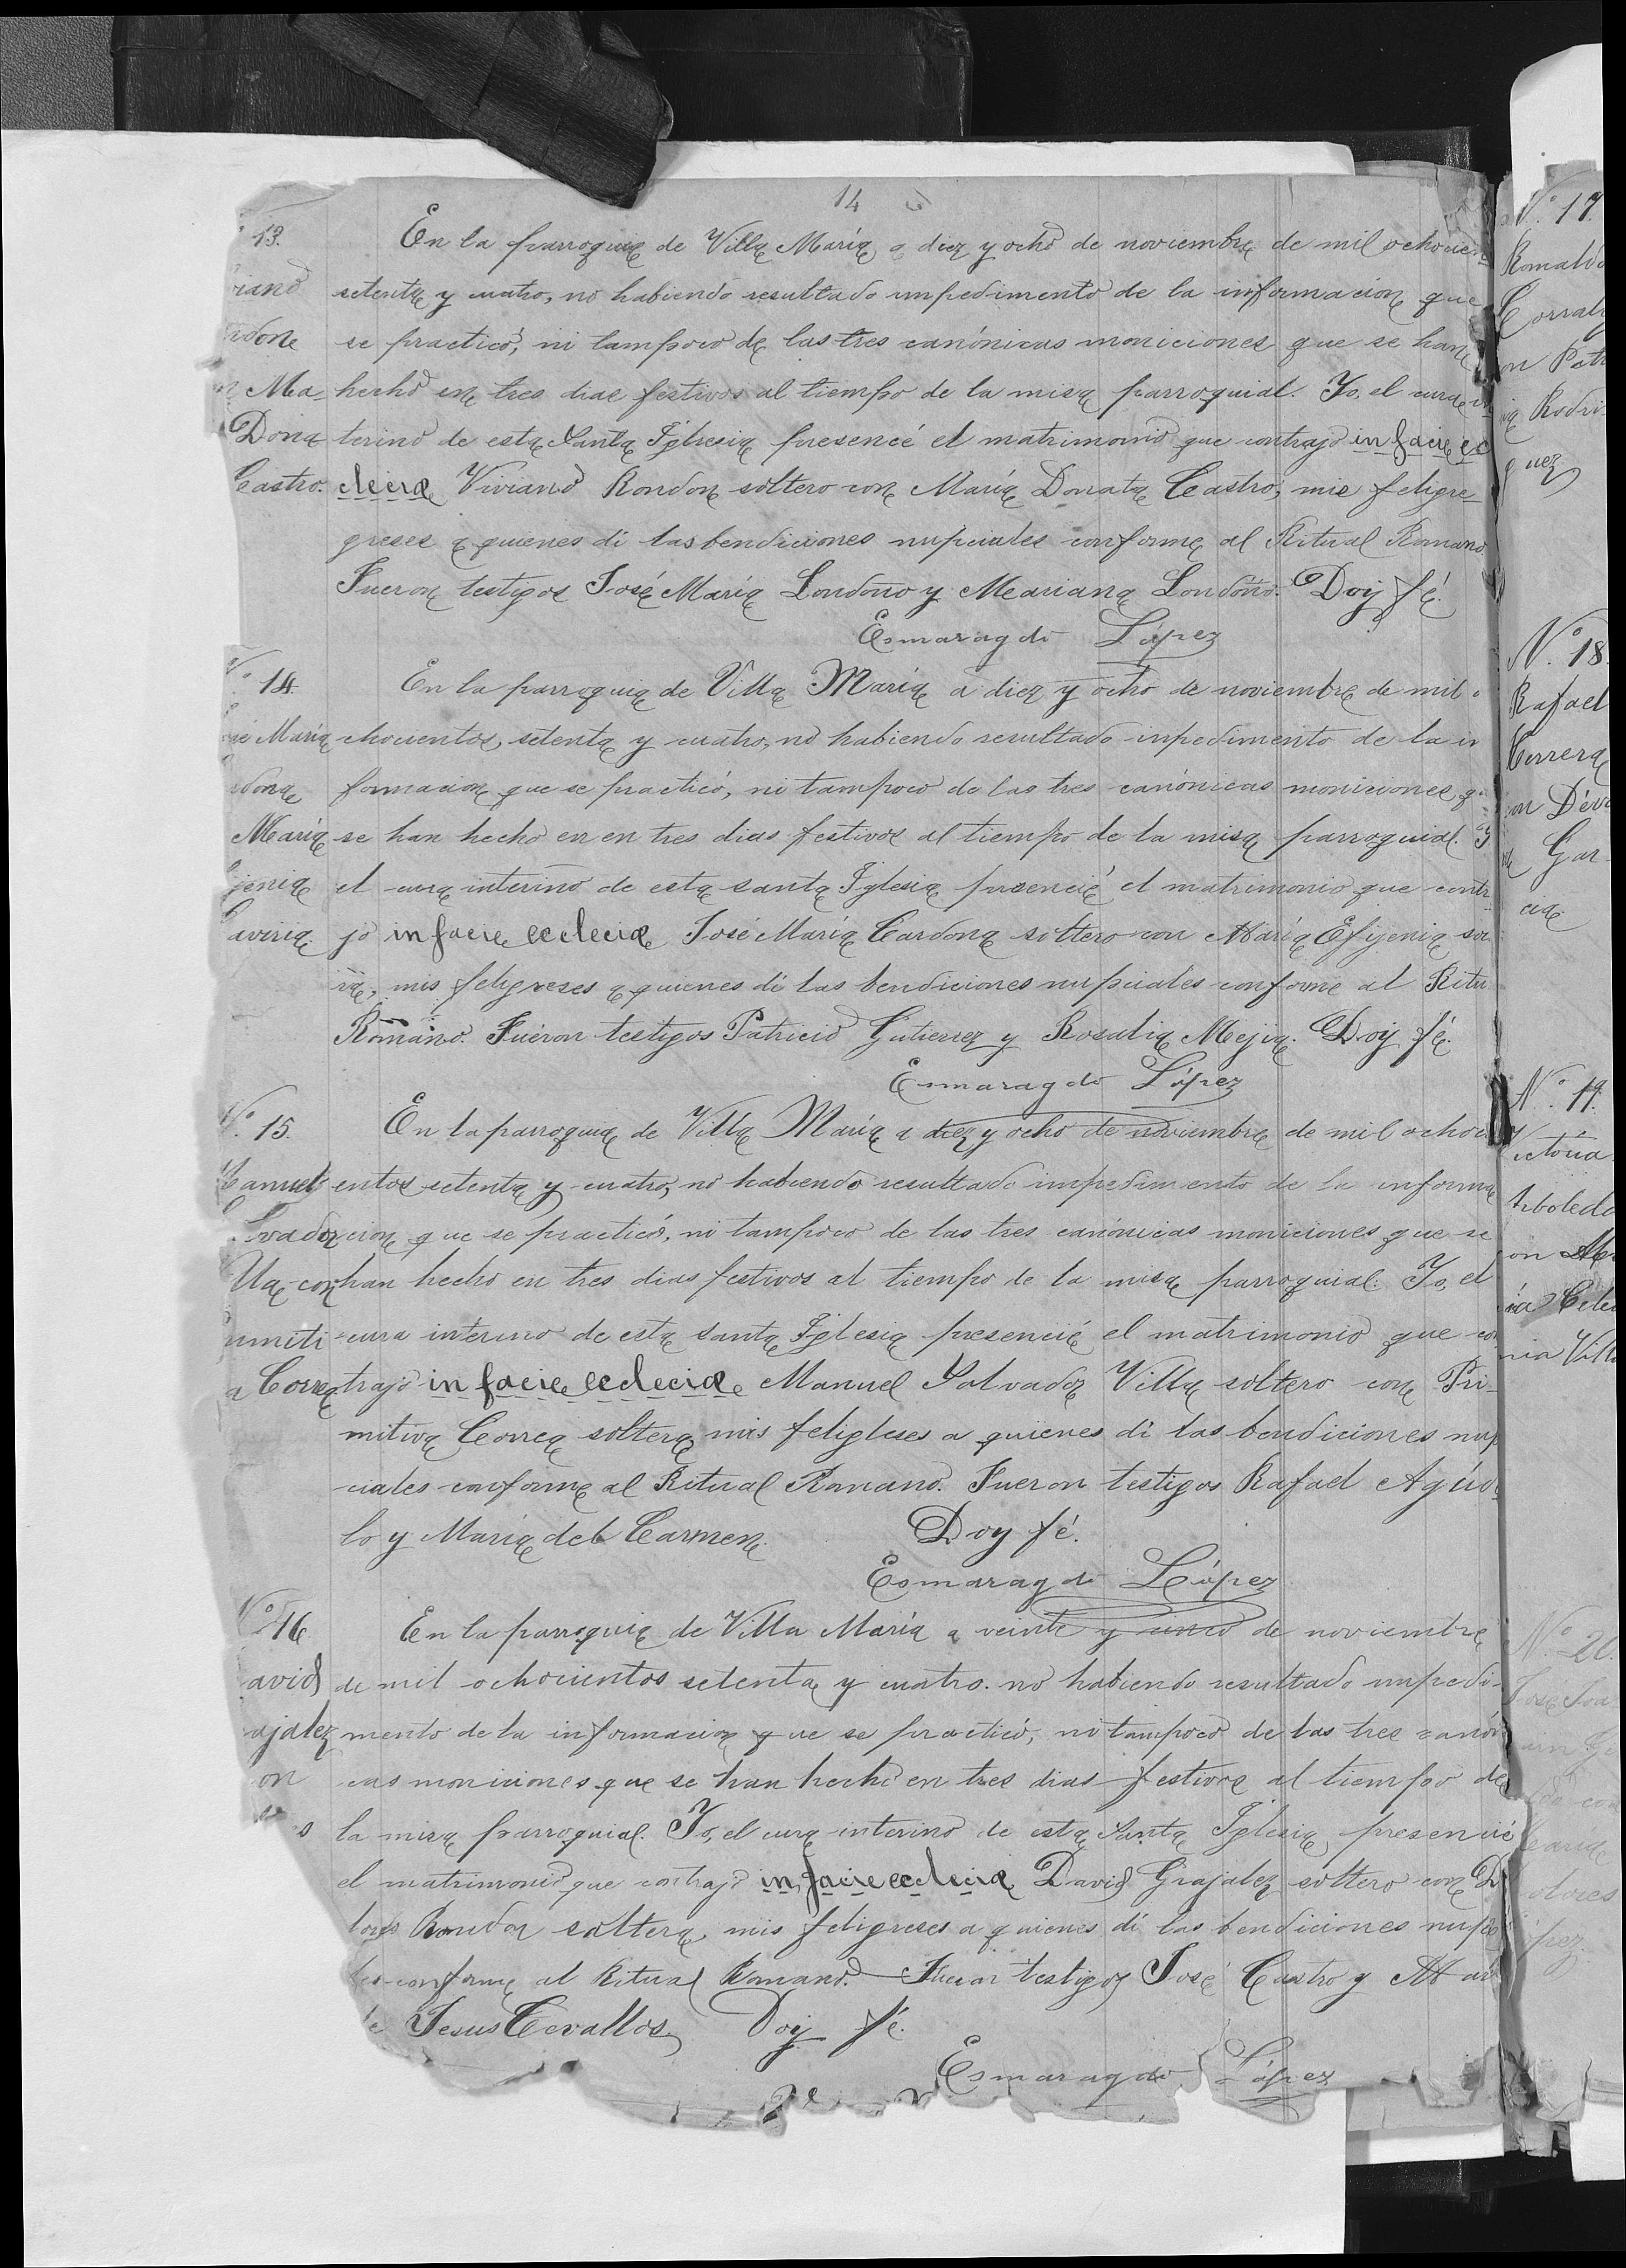 14
13. En la parroquia de Villa María a diez y ocho de noviembre de mil ochocien
viano setenta y cuatro, no habiendo resultado impedimento de la informacion que
ndon se practicó, ni tampoco de las tres canónicas moniciones que se han
n Ma- hecho en tres dias festivos al tiempo de la misa parroquial. Yo, el cura in
Dona terino de esta Santa Iglesia presencié el matrimonio que contrajo in facie ec
Castro. cleciæ Viviano Rondon soltero con María Donata Castro, mis feligre-
greses a quienes di las bendiciones nupciales conforme al Ritual Romano.
Fueron testigos José María Londoño y Mariana Londoño. Doy fé.
Esmaragdo López
N.o 14. En la parroquia de Villa María a diez y ocho de noviembre de mil o
osé María chocientos, setenta y cuatro, no habiendo resultado inpedimento de la in
rdona formacion que se practicó, ni tampoco de las tres canónicas moniciones q
María se han hecho en en tres dias festivos al tiempo de la misa parroquial. Y
jenia el cura interino de esta santa Iglesia presencié el matrimonio que contr
aviria. jo in facie ecleciæ José María Cardona soltero con María Efijenia
ria, mis feligreses a quienes di las bendiciones nupciales conforme al Ritu
Romano. Fueron testigos Patricio Gutierrez y Rosalia Mejia. Doy fé.
Esmaragdo López
N.o 15. En la parroquia de Villa María a diez y ocho de noviembre de mil ochoci
Manuel entos setenta y cuatro, no habiendo resultado impedimento de la informa
lvador cion que se practicó, ni tampoco de las tres canónicas moniciones que se
Vlla con han hecho en tres dias festivos al tiempo de la misa parroquial. Yo, el
rimiti cura interino de esta santa Iglesia presencié el matrimonio que con
a Correa trajo in facie ecleciæ Manuel Salvador Villa soltero con Pri-
mitiva Correa soltera, mis feligleses a quienes di las bendiciones nup
ciales conforme al Ritual Romano. Fueron testigos Rafael Agúde
lo y María del Carmen. Doy fé.
Esmaragdo López
N.o 16 En la parroquia de Villa María a veinte y uno de noviembre
avid de mil ochocientos setenta y cuatro. no habiendo resultado impedi-
ajalez mento de la informacion que se practicó, ni tampoco de las tres canóni
on cas moniciones que se han hecho en tres dias festivos al tiempo de
s la misa parroquial. Yo, el cura interino de esta Santa Iglesia, presencié
el matrimonio que contrajo in facie ecleciæ David Grajalez soltero con D
lores Rondon soltera, mis feligreses a quienes di las bendiciones nupc
les conforme al Ritual Romano. Fueron testigos José Castro y Mar
de Jesus Cevallos. Doy fé.
Esmaragdo López
N.o 17.
Romaldo
Corral
on Petr
Rodri-
guez
N.o 18.
Rafael
Herrera
con
Gar-
cia
N.o 19.
Victoria
Arboleda
con Ma
ria Cele
nia Villa
N.o 20.
José Joa
lores
ópez.